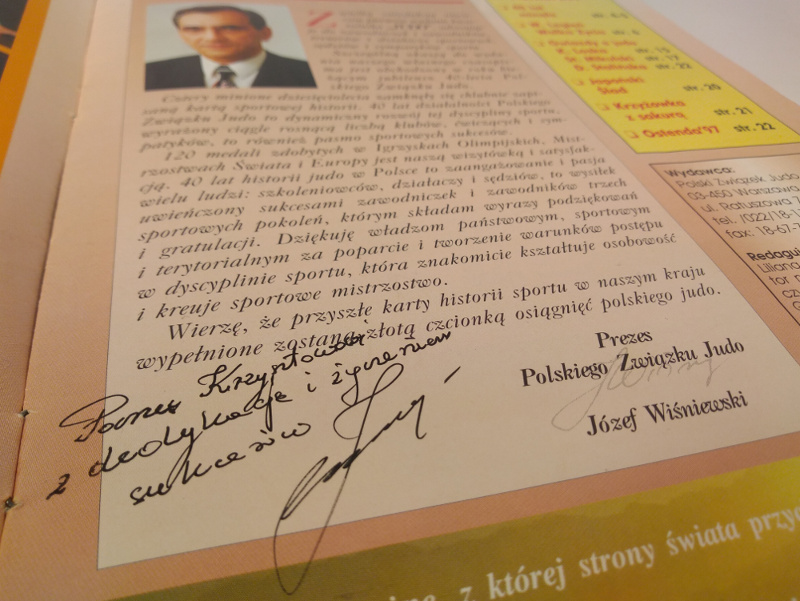 Cztery minione dziesięciolecia zamknęły się chlubnie zapi-
saną kartą sportowej historii. 40 lat działalności Polskiego
Związku Judo to dynamiczny rozwój tej dyscypliny sportu,
wyrażony ciągle rosnącą liczbą klubów, ćwiczących i sym-
patyków, to również pasmo sportowych sukcesów.
120 medali zdobytych w Igrzyskach Olimpijskich, Mist-
rzostwach Świata i Europy jest naszą wizytówką i satysfak-
cją. 40 lat historii judo w Polsce to zaangażowanie i pasja
wielu ludzi: szkoleniowców, działaczy i sędziów, to wysiłek
uwieńczony sukcesami zawodniczek i zawodników trzech
sportowych pokoleń, którym składam wyrazy podziękowań
i gratulacji. Dziękuję władzom państwowym, sportowym
i terytorialnym za poparcie i tworzenie warunków postępu
w dyscyplinie sportu, która znakomicie kształtuje osobowość
i kreuje sportowe mistrzostwo.
Wierzę, że przyszłe karty historii sportu w naszym kraju
wypełnione zostaną złotą czcionką osiągnięć polskiego judo.
Prezes
Polskiego Związku Judo
Józef Wiśniewski
Panu Krzysztowi
z dedykacją i życzeniem
sukcesów
40 lat
str. 4-5
W. Legień
str. 6
str. 15
str. 17
str. 22
Japoński
Ślad
str. 20
Krzyżówka
z sakurą
str. 21
Ostenda'97 str. 22
Wydawca:
Polski Związek Judo
03-450 Warszawa
ul. Ratuszowa 7
tel. (022) 18-1
fax: 18-67-7
Redagu
Liliana
z której strony świata przyc